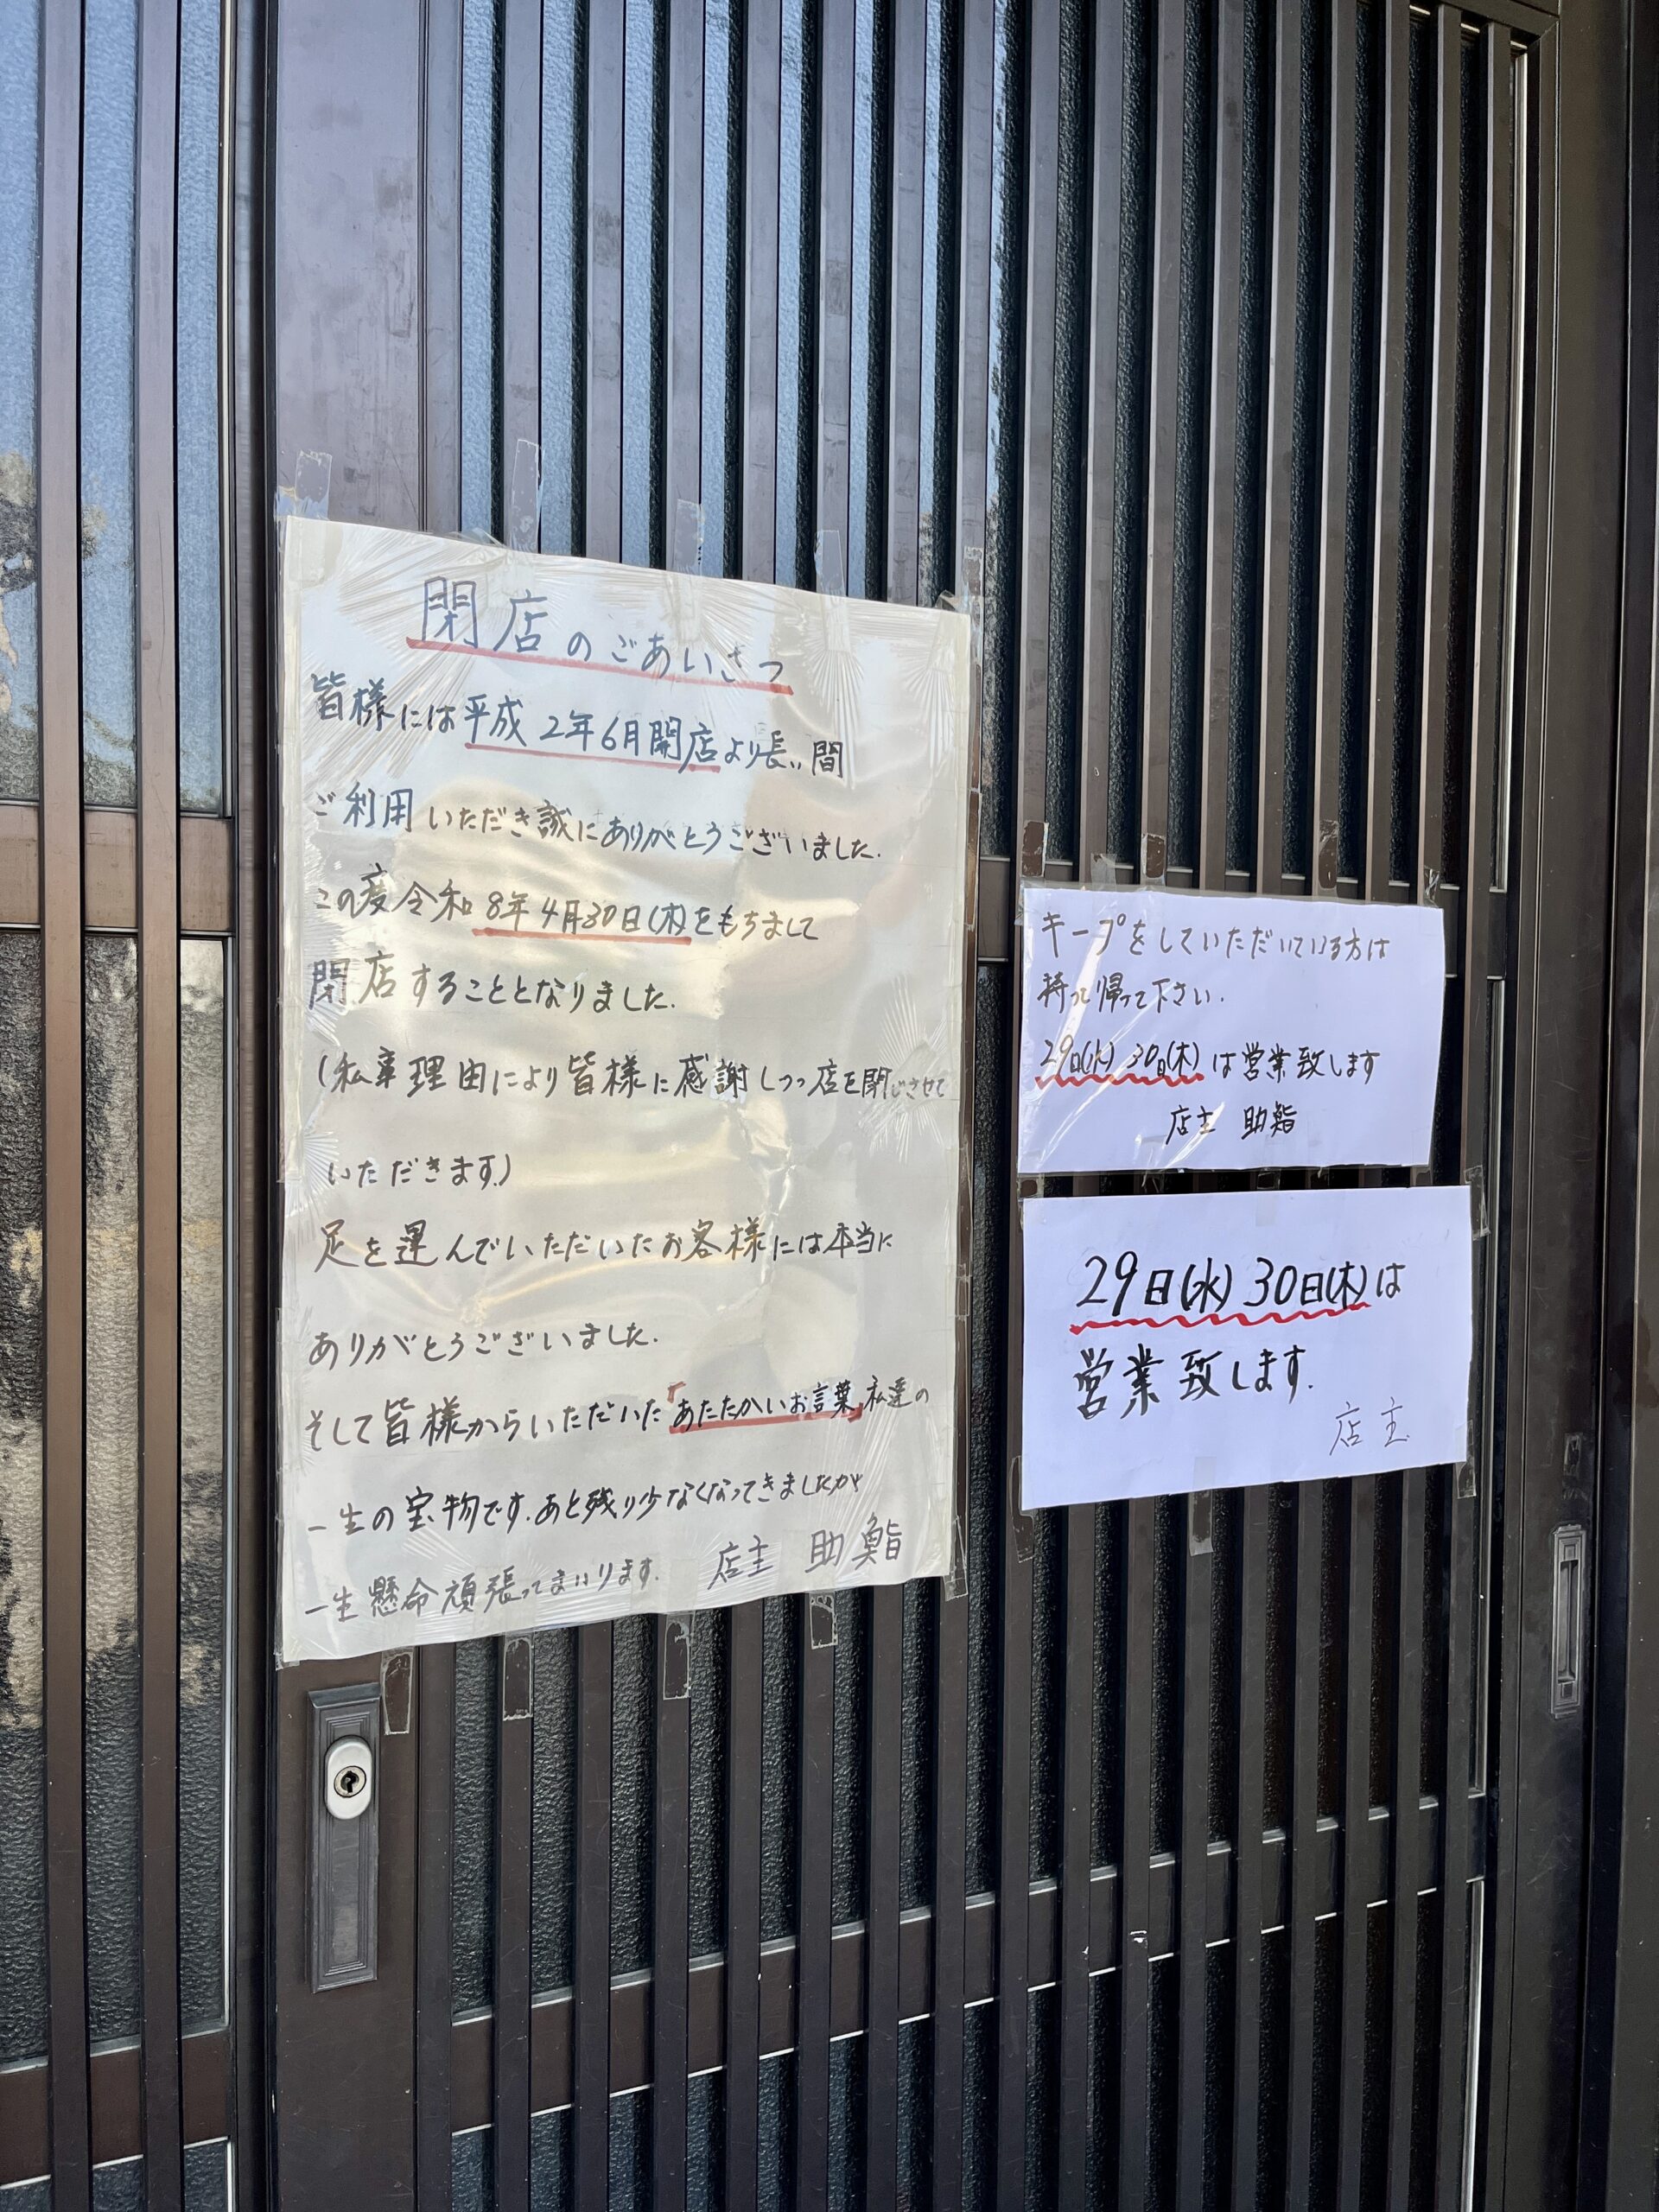 閉店のごあいさつ
皆様には平成2年6月開店より長い間
ご利用いただき誠にありがとうございました.
この度令和8年4月30日(木)をもちまして
閉店することとなりました.
(私事理由により皆様に感謝しつつ店を閉じさせて
いただきます.)
足を運んでいただいたお客様には本当に
ありがとうございました.
そして皆様からいただいた「あたたかいお言葉」私達の
一生の宝物です.あと残り少なくなってきましたが
一生懸命頑張ってまいります. 店主 助鮨
キープをしていただいている方は
持って帰って下さい.
29日(水) 30日(木)は営業致します
店主 助鮨
29日(水) 30日(木)は
営業致します.
店主